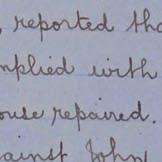 , reported tha
mplied with
ouse repaired.
gainst John